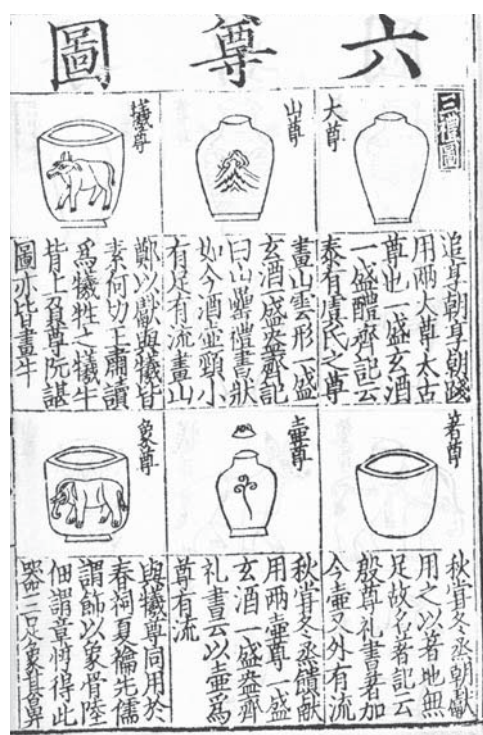 六尊圖
三禮圖
大尊
追享朝享朝踐
用兩大尊太古
尊也一盛玄酒
一盛醴齊記云
泰有虞氏之尊
山尊
畫山雲形一盛
玄酒一盛盎齊記
曰山罍禮書狀
如今酒壺頸小
有足有流畫山
犧尊
鄭以獻與犧皆
素何切王肅讀
為犧牲之犧牛
背上負尊阮諶
圖亦皆畫牛
著尊
秋甞冬烝朝獻
用之以著地無
足故名著記云
殷尊礼書著加
今壺又外有流
壺尊
秋甞冬烝饋献
用兩壺尊一盛
玄酒一盛盎齊
礼書云以壺為
尊有流
象尊
與犧尊同用於
春祠夏禴先儒
謂飾以象骨陸
佃謂章惇得此
器三足象其鼻